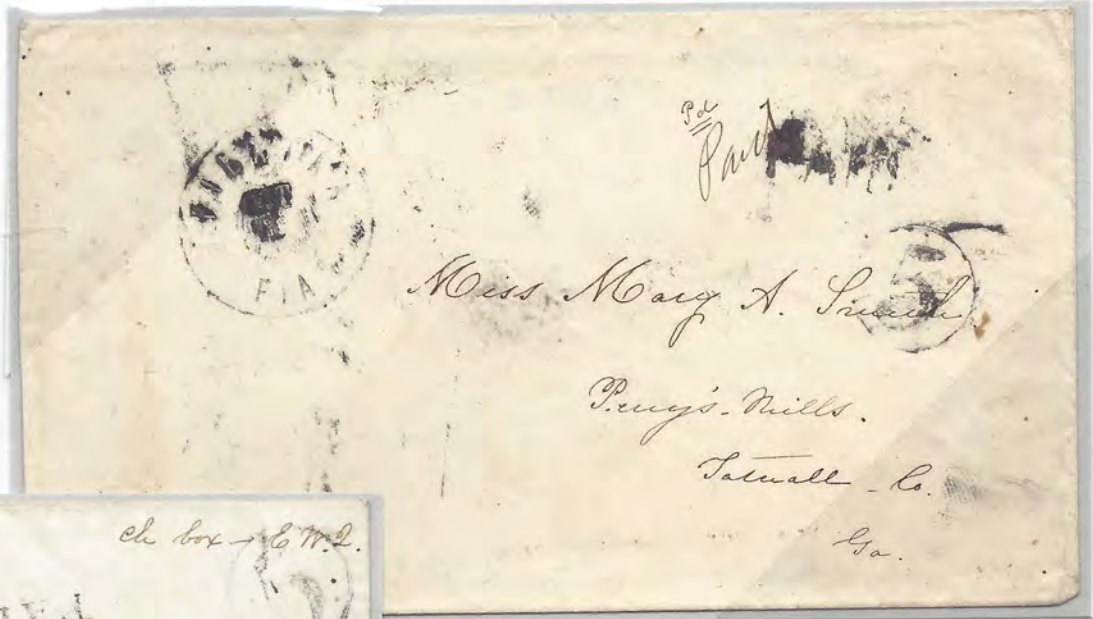 Pd
Paid
FLA
Miss Mary A. Smith
Perry's Mills.
Tatnall Co.
Ga.
ch box